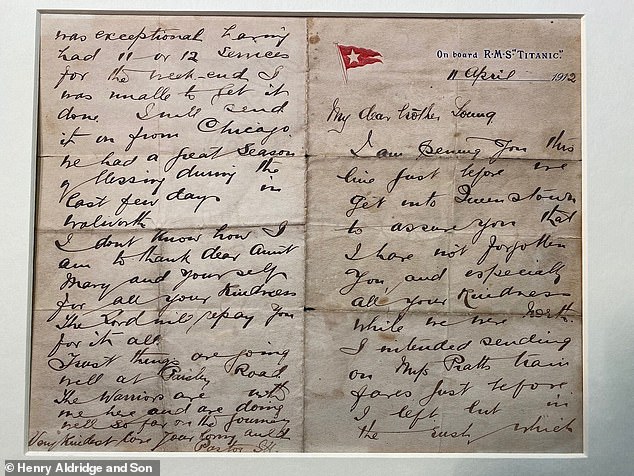 On board R.M.S. "TITANIC."
11 April 1912
My dear brother Young
I am penning you this
line just before we
get into Queenstown
to assure you that
I have not forgotten
you, and especially
all your kindness
while we were North
I intended sending
on Mrs Pratts train
fares just before
I left but in
the rush which
was exceptional having
had 11 or 12 services
for the week-end I
was unable to get it
done I will send
it on from Chicago.
We had a great season
of blessing during the
last few days in
Walworth
I dont know how I
am to thank dear Aunt
Mary and yourself
for all your kindness
The Lord will repay you
for it all.
Trust things are going
well at Paisley Road
The Warriors are with
me here and are doing
well so far on the journey
Very kindest love your loving auld
Pastor
© Henry Aldridge and Son